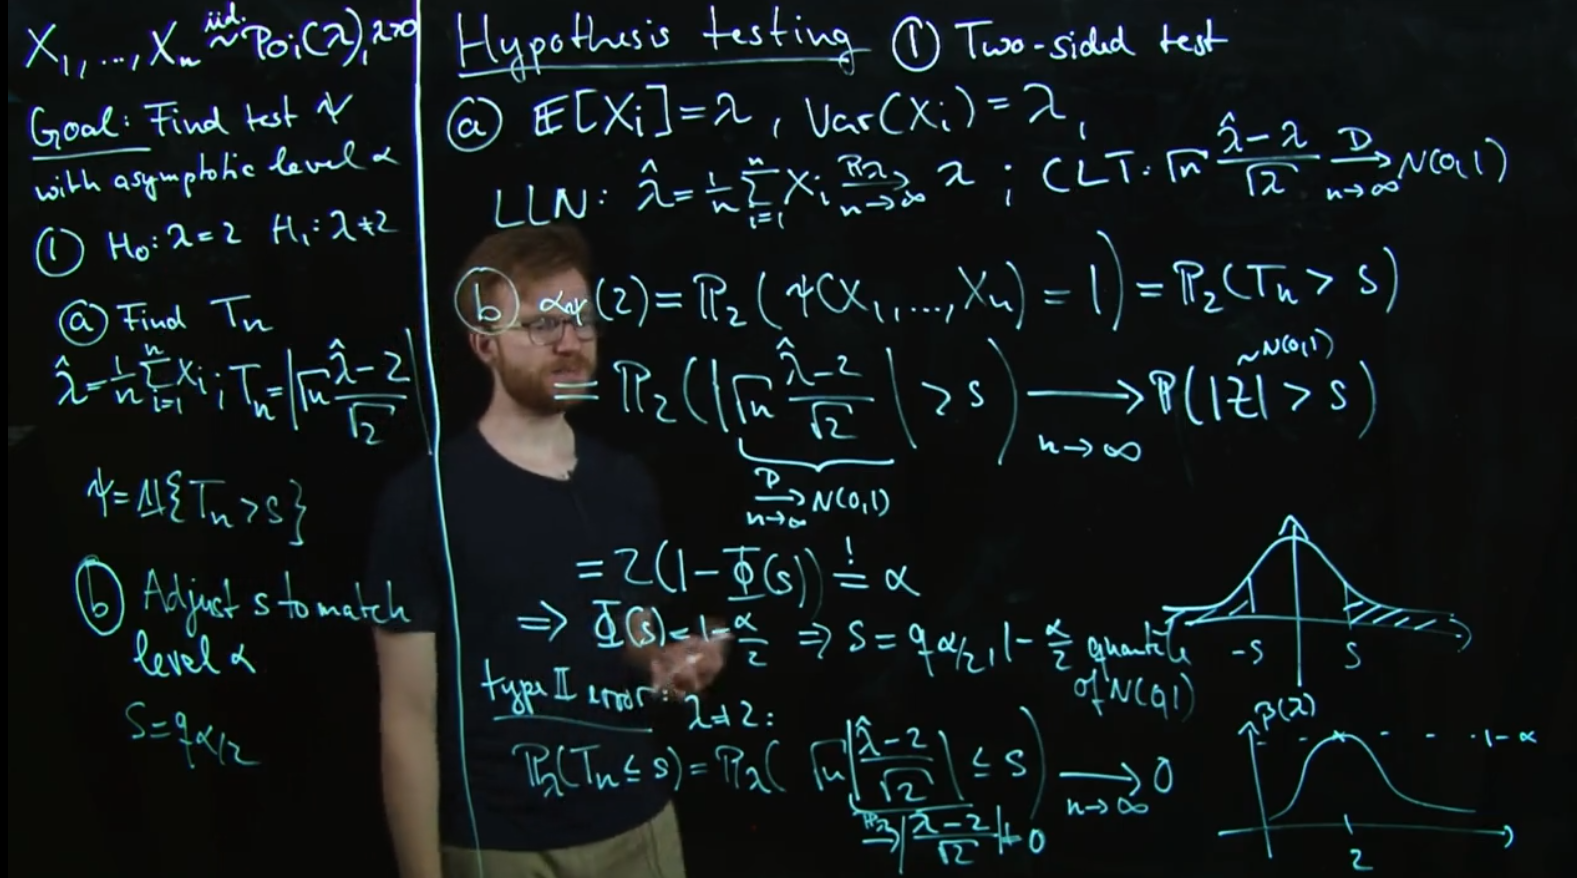 X₁, ..., Xₙ iid. ~ Poi(λ), λ>0
Goal: Find test ψ
with asymptotic level α
① H₀: λ = 2 H₁: λ ≠ 2
ⓐ Find Tₙ
λ̂ = 1/n Σᵢ₌₁ⁿ Xᵢ; Tₙ = |√n (λ̂ - 2)/√2|
ψ = 𝟙{Tₙ > s}
ⓑ Adjust s to match
level α
s = q_{α/2}
Hypothesis testing ① Two-sided test
ⓐ 𝔼[Xᵢ] = λ, Var(Xᵢ) = λ,
LLN: λ̂ = 1/n Σᵢ₌₁ⁿ Xᵢ →(ℙ_λ, n→∞) λ ; CLT: √n (λ̂ - λ)/√λ →(D, n→∞) N(0,1)
ⓑ α_ψ(2) = ℙ₂(ψ(X₁, ..., Xₙ) = 1) = ℙ₂(Tₙ > s)
= ℙ₂(|√n (λ̂ - 2)/√2| > s) →(n→∞) ℙ(|Z| > s)
~N(0,1)
→(D, n→∞) N(0,1)
= 2(1 - Φ(s)) =! α
⇒ Φ(s) = 1 - α/2 ⇒ s = q_{α/2}, 1 - α/2 quantile
of N(0,1)
-s s
type II error: λ ≠ 2:
ℙ_λ(Tₙ ≤ s) = ℙ_λ(√n |(λ̂ - 2)/√2| ≤ s) →(n→∞) 0
→(ℙ_λ) |(λ - 2)/√2| ≠ 0
β(λ)
1 - α
2